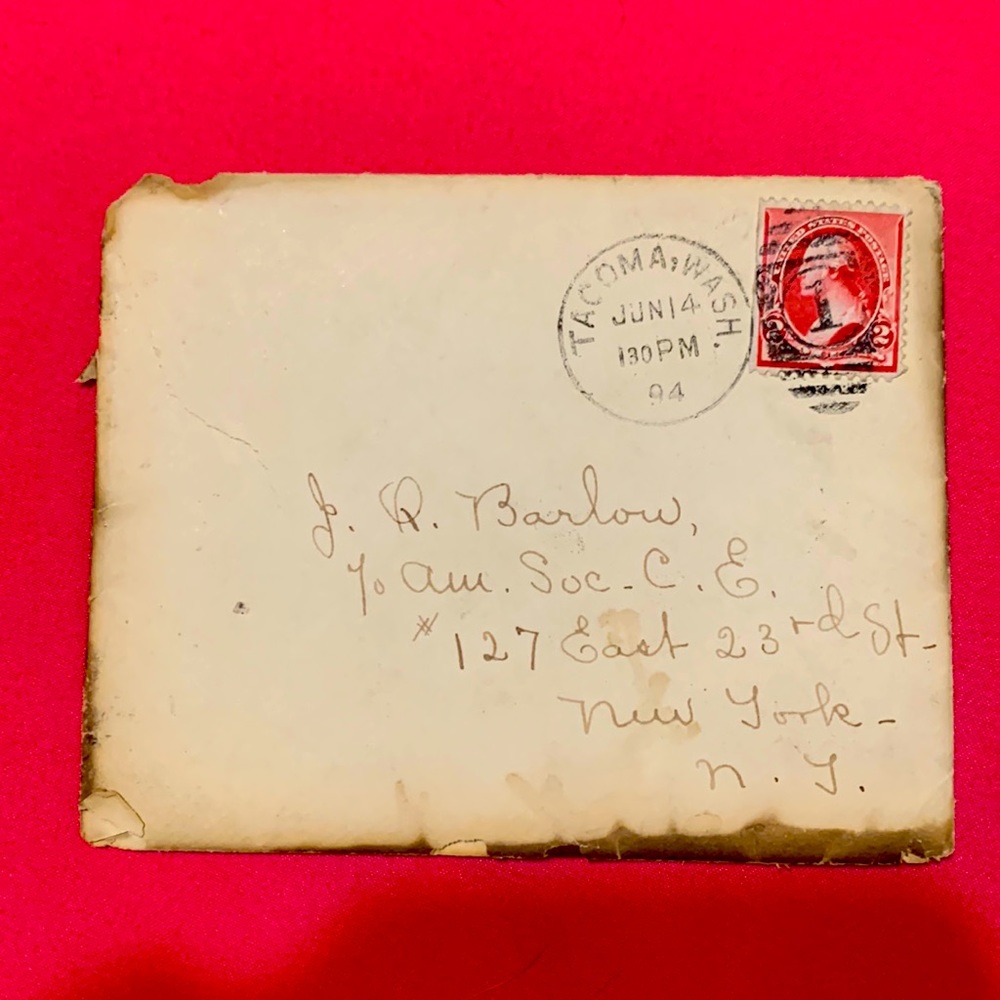 TACOMA, WASH.
JUN 14
130 PM
94
UNITED STATES POSTAGE
1
2 2
J. Q. Barlow,
c/o Am. Soc. C. E.
# 127 East 23rd St-
New York-
N. Y.